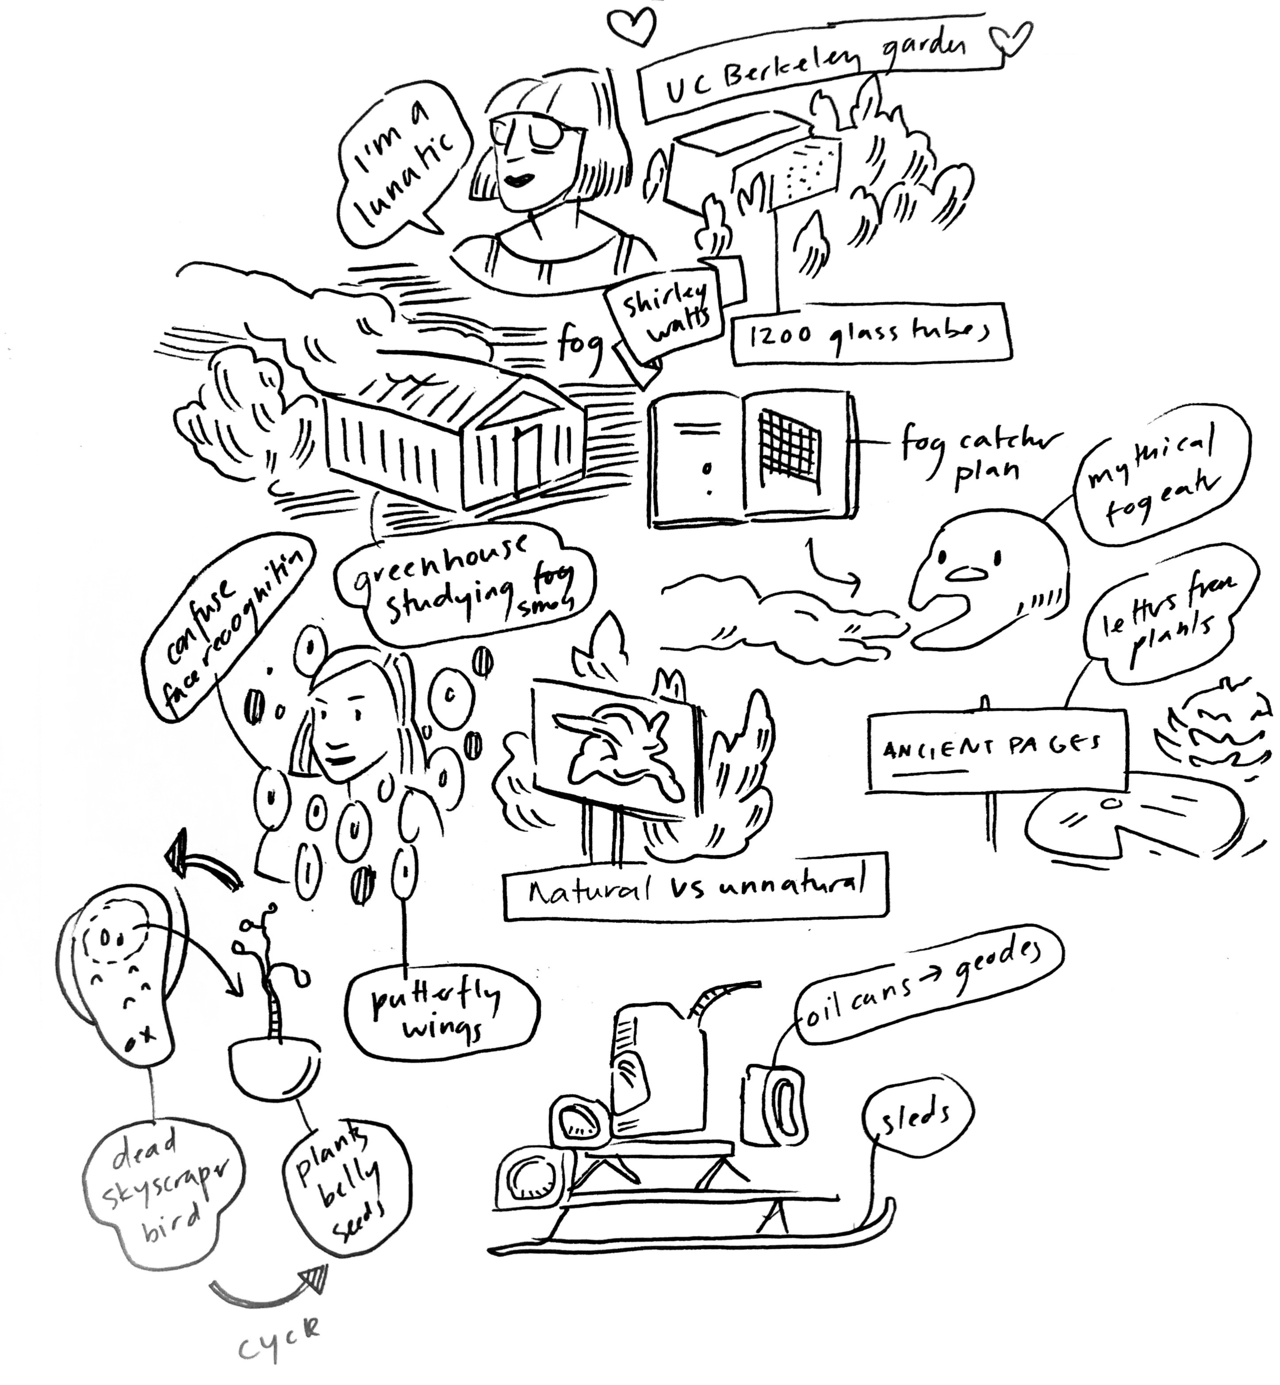 UC Berkeley garden
I'm a
lunatic
shirley
watts
1200 glass tubes
fog
fog catcher
plan
mythical
fog eatr
greenhouse
studying fog
smog
confuse
face recognitin
letters from
plants
ANCIENT PAGES
Natural vs unnatural
putterfly
wings
oil cans → geodes
sleds
dead
skyscraper
bird
plants
belly
seeds
cycle